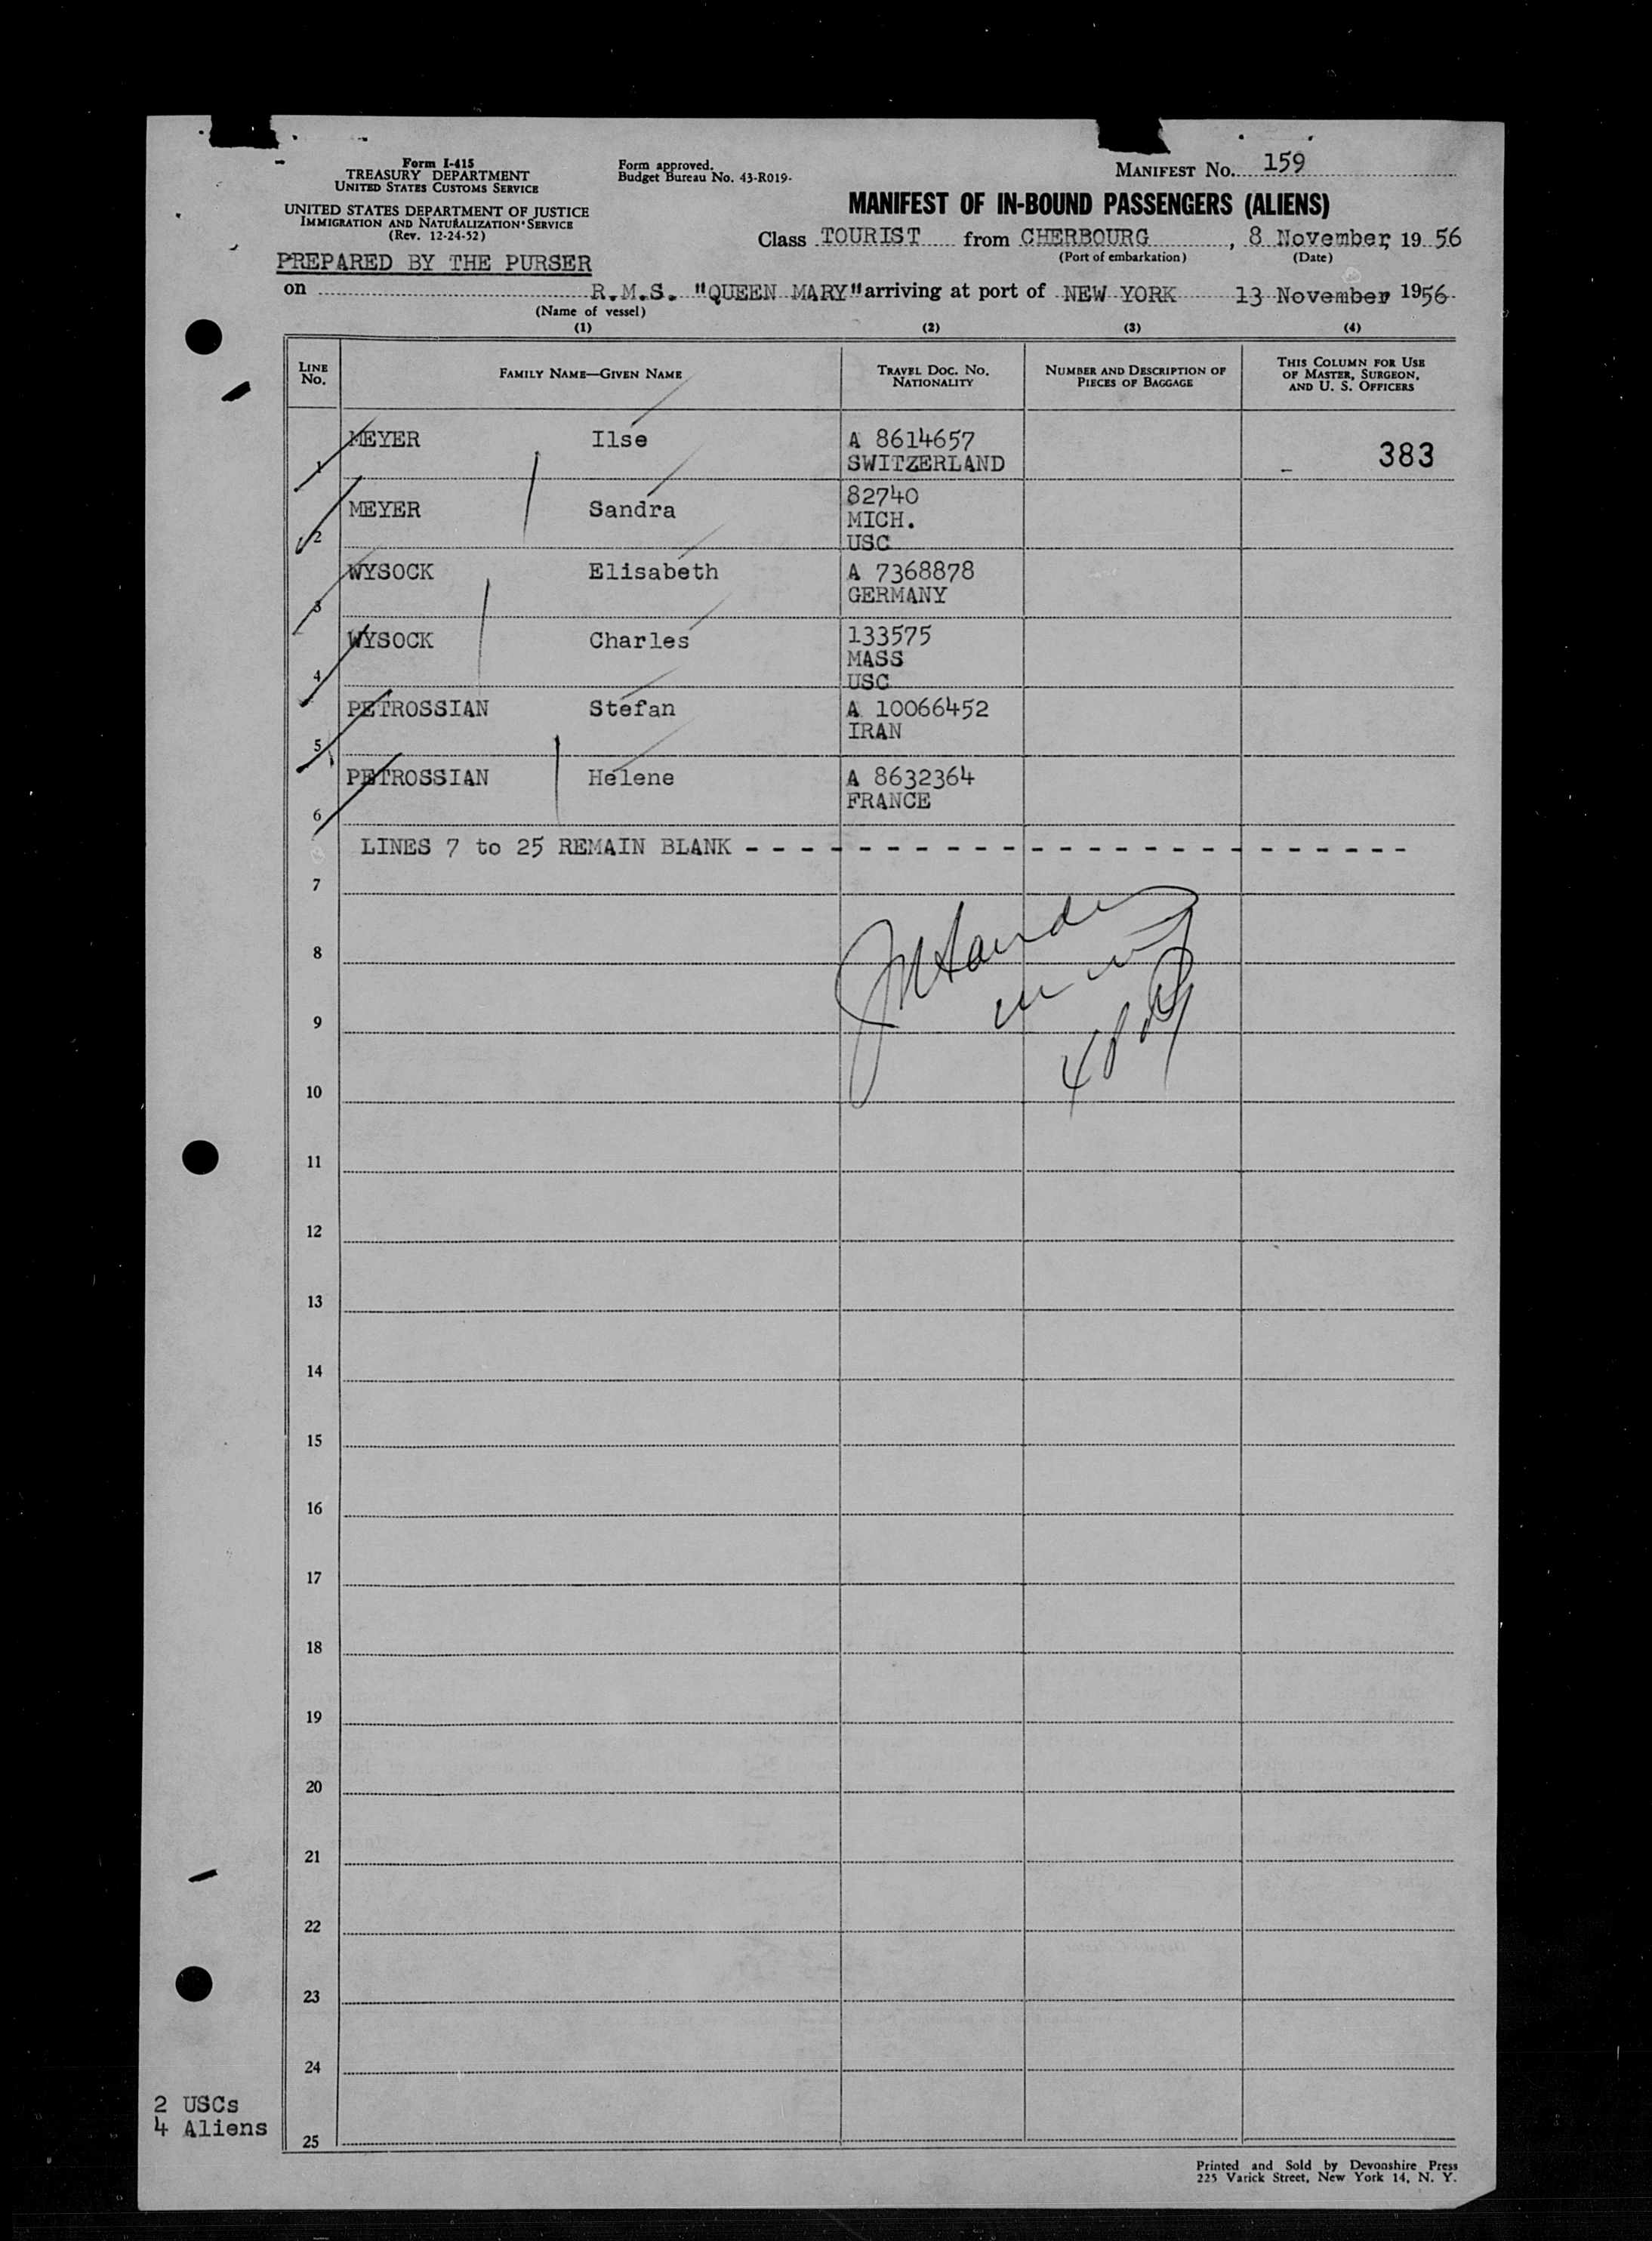 Form I-415
TREASURY DEPARTMENT
UNITED STATES CUSTOMS SERVICE
UNITED STATES DEPARTMENT OF JUSTICE
IMMIGRATION AND NATURALIZATION SERVICE
(Rev. 12-24-52)
PREPARED BY THE PURSER
Form approved.
Budget Bureau No. 43-R019.
MANIFEST No. 159
MANIFEST OF IN-BOUND PASSENGERS (ALIENS)
Class TOURIST from CHERBOURG, 8 November, 1956
(Port of embarkation) (Date)
on R.M.S. "QUEEN MARY" arriving at port of NEW YORK 13 November 1956
(Name of vessel)
(1) (2) (3) (4)
LINE No. FAMILY NAME—GIVEN NAME TRAVEL DOC. NO. NATIONALITY NUMBER AND DESCRIPTION OF PIECES OF BAGGAGE THIS COLUMN FOR USE OF MASTER, SURGEON, AND U. S. OFFICERS
1 MEYER Ilse A 8614657 383
SWITZERLAND
2 MEYER Sandra 82740
MICH.
USC
3 WYSOCK Elisabeth A 7368878
GERMANY
4 WYSOCK Charles 133575
MASS
USC
5 PETROSSIAN Stefan A 10066452
IRAN
6 PETROSSIAN Helene A 8632364
FRANCE
LINES 7 to 25 REMAIN BLANK - - - - - - - - - - - - - - - - - - - - - - -
7
8
9
10
11
12
13
14
15
16
17
18
19
20
21
22
23
24
25
2 USCs
4 Aliens
Printed and Sold by Devonshire Press
225 Varick Street, New York 14, N. Y.